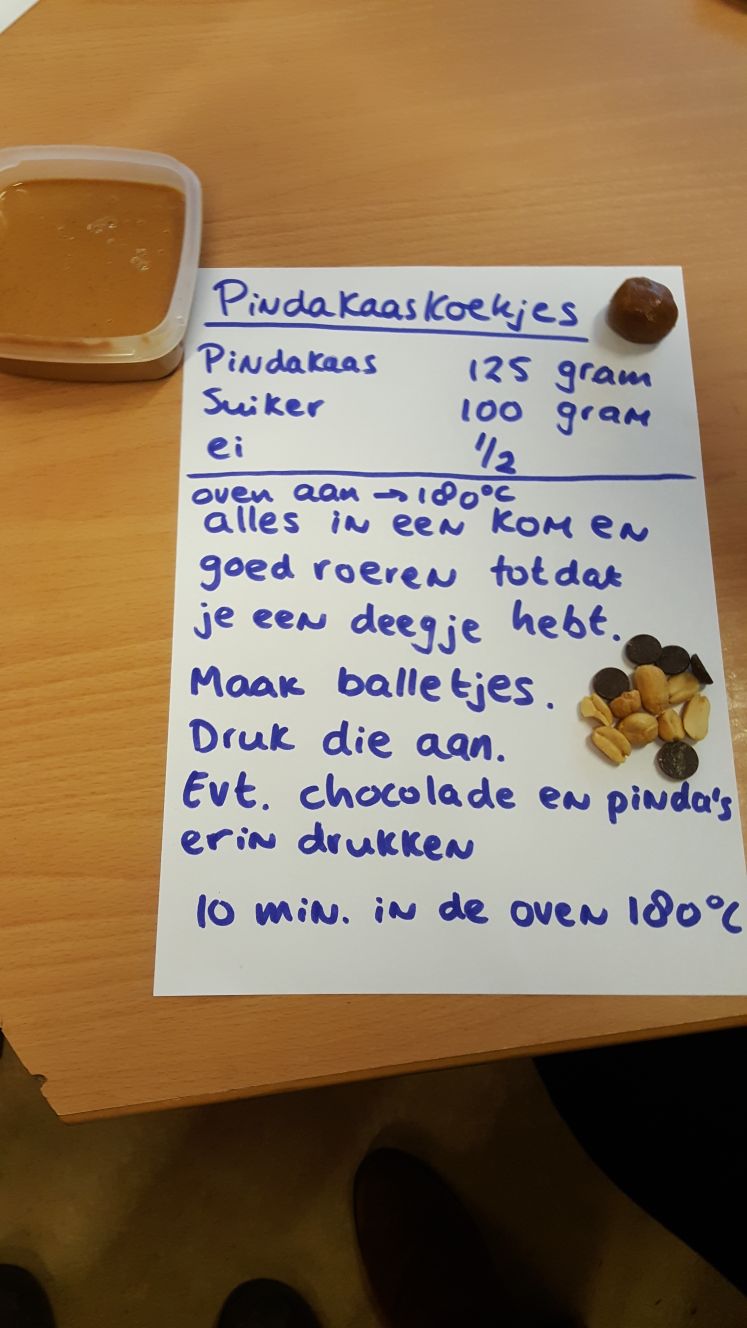 Pindakaaskoekjes
Pindakaas 125 gram
Suiker 100 gram
ei 1/2
oven aan → 180°C
alles in een kom en
goed roeren totdat
je een deegje hebt.
Maak balletjes.
Druk die aan.
Evt. chocolade en pinda's
erin drukken
10 min. in de oven 180°C